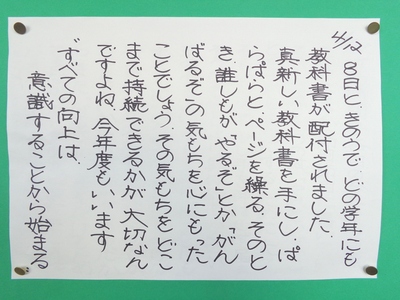 4/12
8日と、きのうで、どの学年にも
教科書が配付されました。
真新しい教科書を手にし、ぱ
らぱらと、ページを繰る。そのと
き、誰しもが「やるぞ」とか「がん
ばるぞ」の気もちを心にもった
ことでしょう。その気もちをどこ
まで持続できるかが、大切なん
ですよね。今年度も、います
"すべての向上は、
意識することから始まる